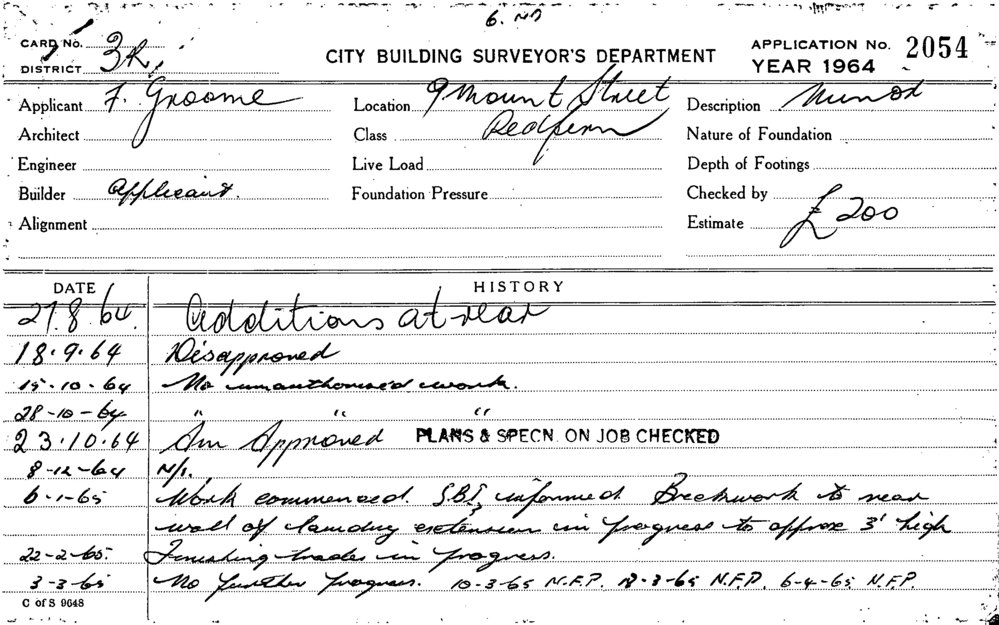 6. ND
CARD No.
DISTRICT 3R.
CITY BUILDING SURVEYOR'S DEPARTMENT
APPLICATION No. 2054
YEAR 1964
Applicant F. Groome
Location 9 Mount Street
Description Minor
Architect
Class Redfern
Nature of Foundation
Engineer
Live Load
Depth of Footings
Builder Applicant.
Foundation Pressure
Checked by
Alignment
Estimate £200
DATE HISTORY
27.8.64. Additions at rear
18.9.64 Disapproved
15-10-64 No unauthorised work.
28-10-64 " " "
23.10.64 Approved PLANS & SPECN. ON JOB CHECKED
8-12-64 N/1.
6-1-65 Work commenced. S.B.I. informed Brickwork to rear
wall of laundry extension in progress to approx 3' high
22-2-65. Finishing trades in progress.
3-3-65 No further progress. 10-3-65 N.F.P. N.F.P. 6-4-65 N.F.P.
C of S 9648